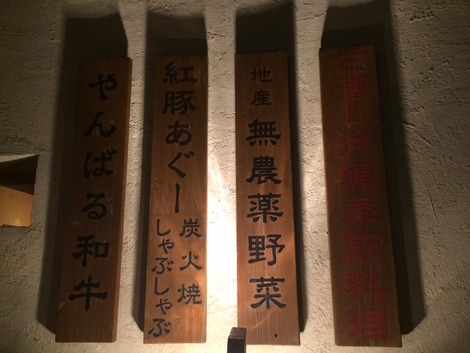 酒 沖縄 料理
地産 無農薬野菜
紅豚あぐー
炭火焼
しゃぶしゃぶ
やんばる和牛